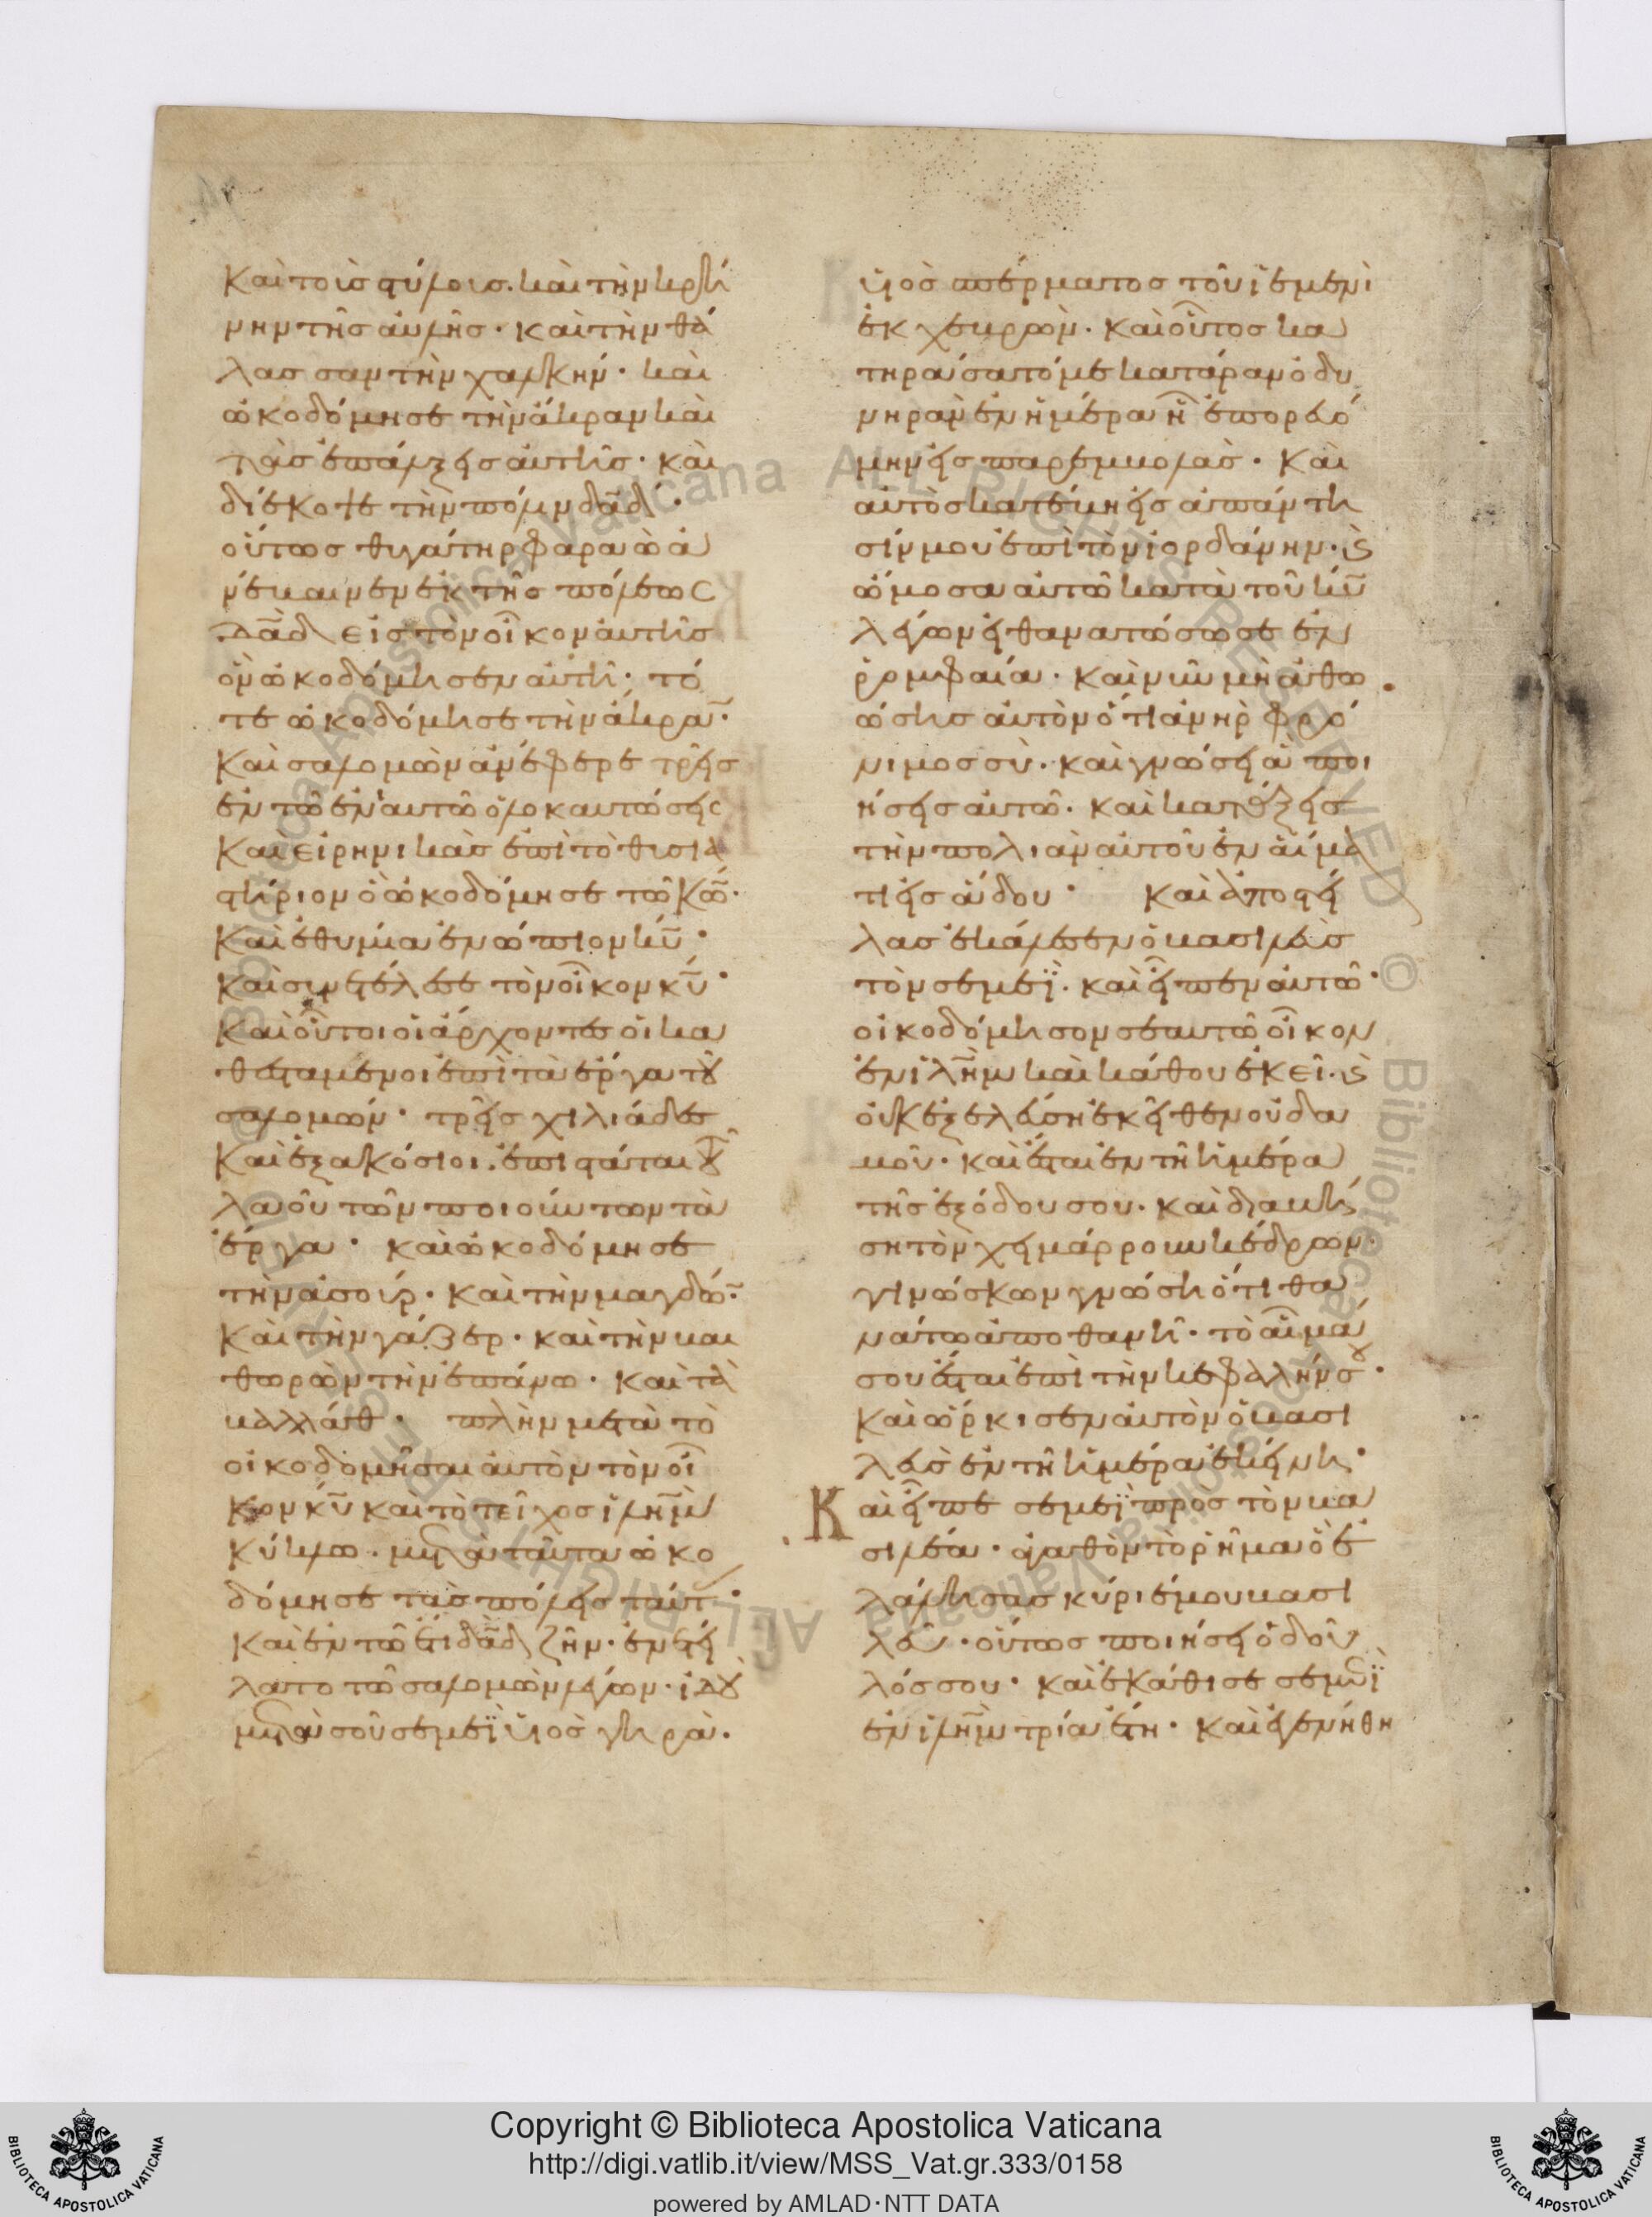 Καὶ τοῖς στύλοις. καὶ τὴν κρή
νην τῆς αὐλῆς· καὶ τὴν θά
λασσαν τὴν χαλκήν· καὶ
ὠκοδόμησε τὴν ἄκραν καὶ
τὰς ἐπάλξεις αὐτῆς· καὶ
διέκοψε τὴν πόλιν δα̅δ·
οὕτως θυγάτηρ φαραὼ ἀ
νέβαινεν ἐκ τῆς πόλεως
δα̅δ εἰς τὸν οἶκον αὐτῆς
ὃν ὠκοδόμησεν αὐτῇ· τό
τε ὠκοδόμησε τὴν ἄκρα̅·
Καὶ σαλομὼν ἀνέφερε τρεῖς
ἐν τῷ ἐνιαυτῷ ὁλοκαυτώσεις
Καὶ εἰρηνικὰς ἐπὶ τὸ θυσια
στήριον ὃ ὠκοδόμησε τῷ κ̅ω̅·
Καὶ ἐθυμία ἐνώπιον κ̅υ̅·
Καὶ συνετέλεσε τὸν οἶκον κ̅υ̅·
Καὶ οὗτοι οἱ ἄρχοντες οἱ κα
θεσταμενοι ἐπὶ τὰ ἔργα τοῦ
σαλομών· τρεῖς χιλιάδες
Καὶ ἑξακόσιοι. ἐπιστάται τοῦ
λαοῦ τῶν ποιούντων τὰ
ἔργα· καὶ ὠκοδόμησε
τὴν ἀσούρ· καὶ τὴν μαγδώ̅·
Καὶ τὴν γάζερ· καὶ τὴν βαι
θωρὼν τὴν ἐπάνω· καὶ τὰ
βαλλάθ· πλὴν μετὰ τὸ
οἰκοδομῆσαι αὐτὸν τὸν οἶ
κον κ̅υ̅ καὶ τὸ τεῖχος ἰλη̅μ
κύκλω· μετὰ ταῦτα ὠκο
δόμησε τὰς πόλεις ταύτ·
Καὶ ἐν τῷ ἔτι δα̅δ ζῆν· ἐνετεί
λατο τῷ σαλομὼν λέγων· ἰδοὺ
μετὰ σοῦ σεμεῒ υἱὸς γηρὰ·
υἱὸς σπέρματος τοῦ ἰεμενὶ
ἐκ χεβρών· καὶ οὗτος κα
τηράσατό με κατάραν ὀδυ
νηρὰν ἐν ἡμέρα ᾗ ἐπορευό
μην εἰς παρεμβολὰς· Καὶ
αὐτὸς κατέβη εἰς ἀπάντη
σίν μου ἐπὶ τὸν ἰορδάνην· ϗ
ὤμοσα αὐτῷ κατὰ τοῦ κ̅υ̅
λέγων εἰ θανατώσω σε ἐν
ῥομφαία· Καὶ νῦν μὴ ἀθω
ώσης αὐτὸν ὅτι ἀνὴρ φρό
νιμος σὺ· καὶ γνώσει ἃ ποι
ήσεις αὐτῷ· καὶ κατάξεις
τὴν πολιὰν αὐτοῦ ἐν αἵμα
τι εἰς ἅδου· Καὶ ἀποστεί
λας ἐκάλεσεν ὁ βασιλεὺς
τὸν σεμεῒ· καὶ εἶπεν αὐτῷ·
οἰκοδόμησον σεαυτῷ οἶκον
ἐν ἰλη̅μ καὶ κάθου ἐκεῖ· ϗ
οὐκ ἐξελεύση ἐκεῖθεν οὐδα
μοῦ· καὶ ἔσται ἐν τῇ ἡμέρα
τῆς ἐξόδου σου· καὶ διαβή
ση τὸν χειμάρρουν κέδρων·
γινώσκων γνώση ὅτι θα
νάτω ἀποθανῇ· τὸ αἷμά
σου ἔσται ἐπὶ τὴν κεφαλήν σου·
Καὶ ὥρκισεν αὐτὸν ὁ βασι
λεὺς ἐν τῇ ἡμέρα ἐκείνη·
Καὶ εἶπε σεμεῒ προς τὸν βα
σιλέα· ἀγαθὸν τὸ ῥῆμα ὃ ἐ
λάλησας κύριέ μου βασι
λεῦ· οὕτως ποιήσει ὁ δοῦ
λός σου· Καὶ ἐκάθισε σεμεῒ
ἐν ἰλη̅μ τρία ἔτη· Καὶ ἐγενήθη
Copyright © Biblioteca Apostolica Vaticana
http://digi.vatlib.it/view/MSS_Vat.gr.333/0158
powered by AMLAD·NTT DATA